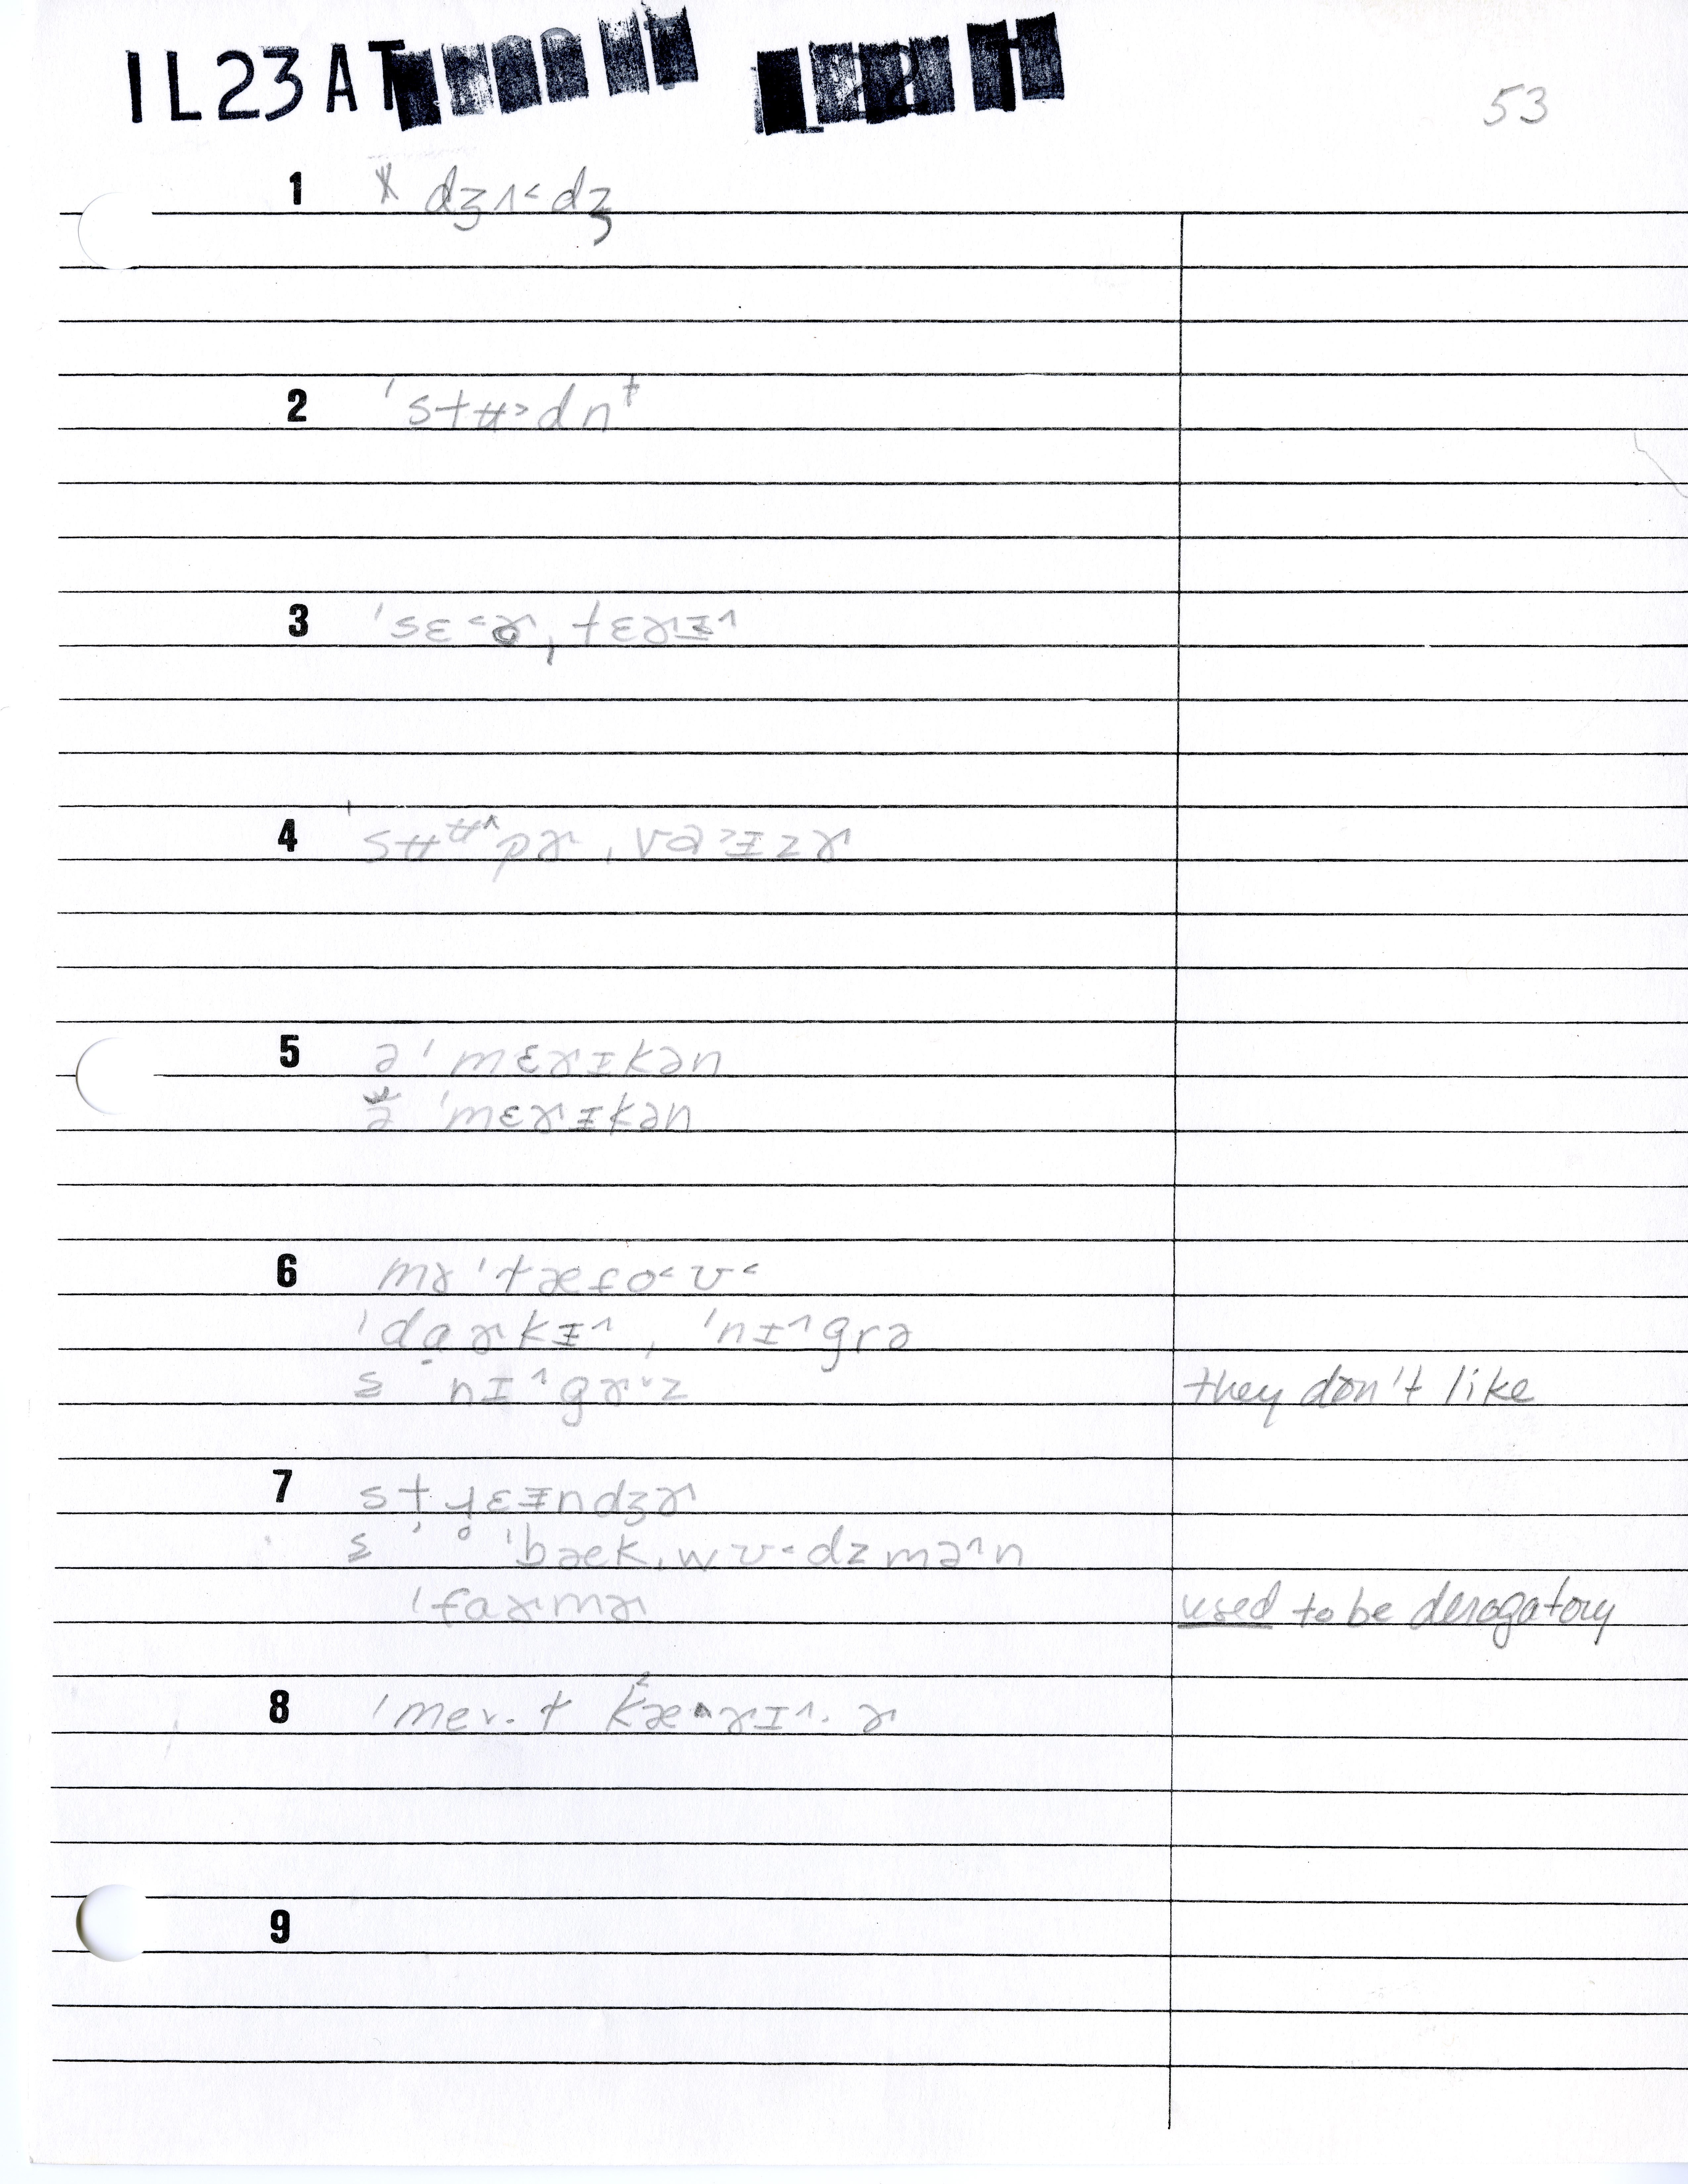 IL23AT
53
1 dʒʌ˂dʒ
2 'stʉ˃dnᵗ
3 'sɛ˂ɚ,tɛɚɪ˄
4 'sʉᶶ˄pɚ,vaɪzɚ
5 ə'mɛɚɪkən
ə'mɛɚɪkən
6 mɚ'tæfo˂ʊ˂
'dɑɚkɪ˄, 'nɪ˄grə
ꜱ nɪ˄gɚ˅z they don't like
7 stɹɛɪndʒɚ
'bæk,wʊ˂dzmə˄n
'fɑɚmɚ used to be derogatory
8 'me˅·t kæ˄ɚɪ˄·ɚ
9